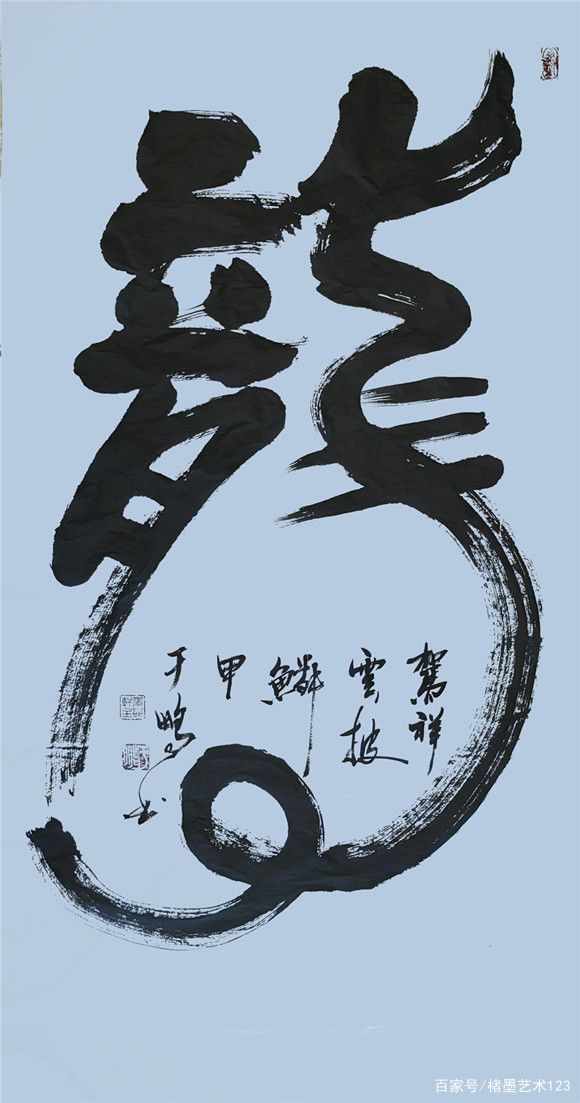 龍
駕祥
雲披
鱗
甲
于鹏
百家号/楮墨艺术123